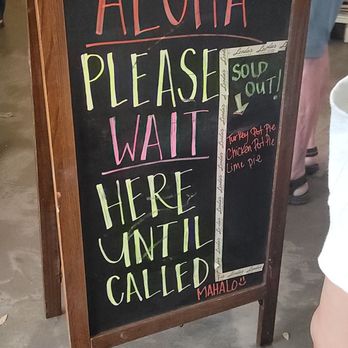 ALOHA
PLEASE
WAIT
HERE
UNTIL
CALLED
MAHALO
SOLD
OUT!
Turkey Pot Pie
Chicken Pot Pie
Lime pie